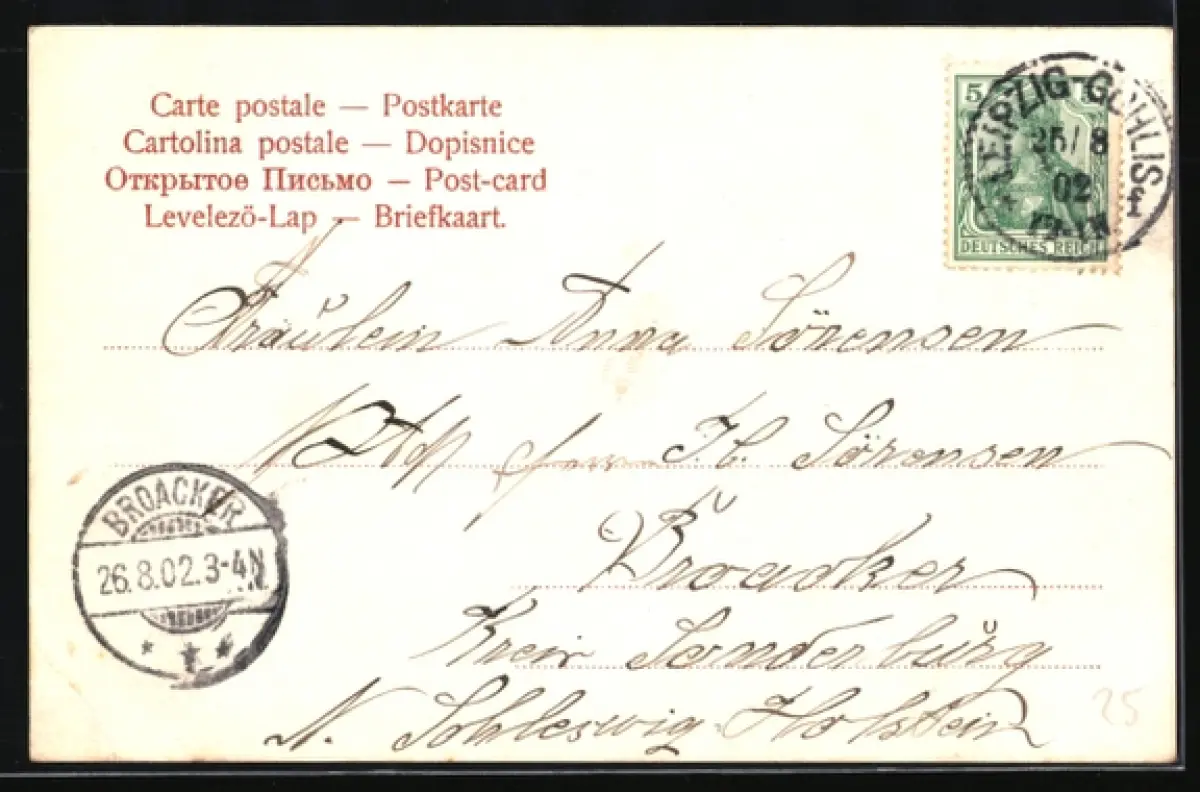 Carte postale — Postkarte
Cartolina postale — Dopisnice
Открытое Письмо — Post-card
Levelező-Lap — Briefkaart.
5
LEIPZIG-GOHLIS
25/8
02
DEUTSCHES REICH
Fräulein Anna Sörensen
Sörensen
Broacker
Kreis Sonderburg
N. Schleswig-Holstein
BROACKER
26.8.02.3-4N
25